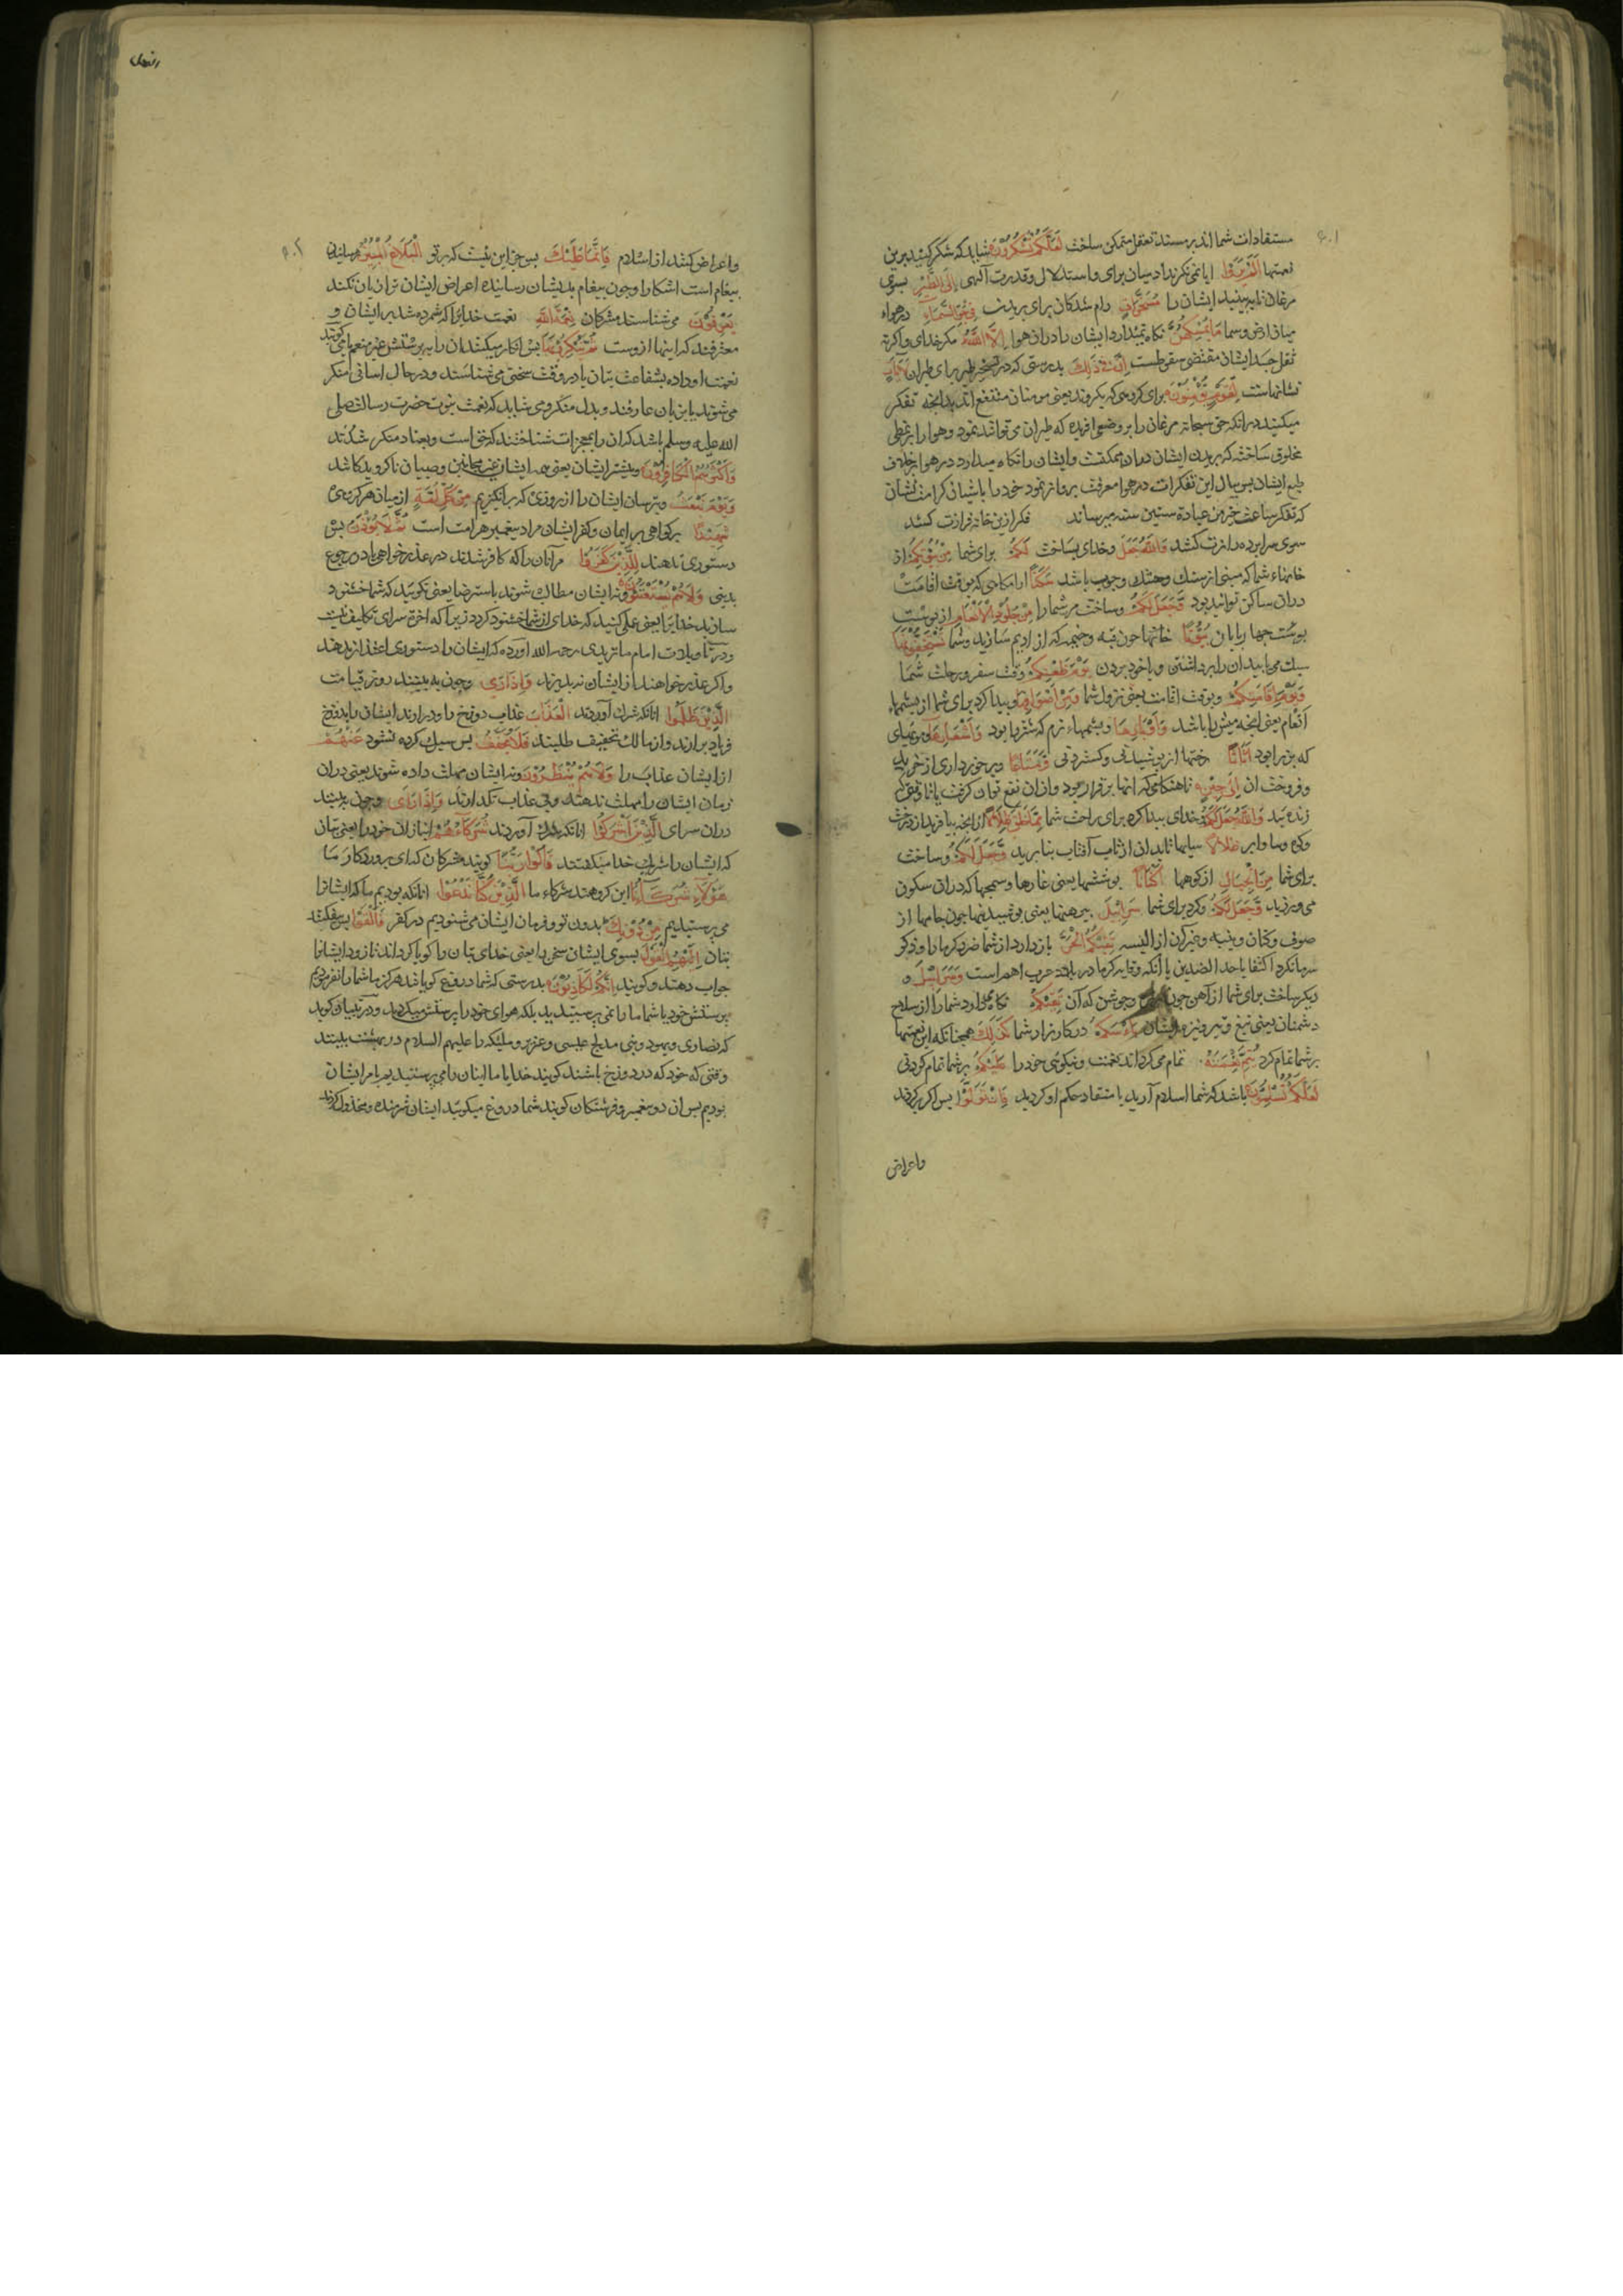 مستفادات شما اند بر مسند تعقل متمکن ساخت لَعَلَّكُمْ تَشْكُرُونَ شاید که شکر کنید برین
نعمتها اَلَمْ یَرَوْا ایا نمی نکرند ادمیان برای واستدلال وقدرت آلهی اِلَی الطَّیْرِ بسوی
مرغان تا ببینید ایشان را مُسَخَّراتٍ رام شدکان برای پریدن فِی جَوِّ السَّمَاءِ در هواء
میان ارض وسما مَا یُمْسِكُهُنَّ نکاه نمیدارد ایشان را دران هوا اِلَّا اللهُ مکر خدای واکرنه
ثقل جسد ایشان مقتضی سقوطست اِنَّ فِی ذٰلِكَ بدرستی که در تسخیر طیر برای طیران لَآیَاتٍ
نشانهاست لِقَوْمٍ یُؤْمِنُونَ برای کروهی که بکروند یعنی مومنان منتفع اند بدانچه تفکر
میکنند درانکه حق سبحانه مرغان را بر وضعی افریده که طیران می توانند نمود وهوا را بر نمطی
مخلوق ساخته که پریدن ایشان دران ممکنست وایشان را نکاه میدارد در هوا بر خلاف
طبع ایشان پس ببال این تفکرات در هوا معرفت پرواز نمود خود را باشیان کرامت کشان
که تفکر ساعت خیر من عبادة ستین سنه میرساند فکر ازین خانه فرازت کشد
سوی سرا پرده رازت کشد وَاللهُ جَعَلَ وخدای بساخت لَكُمْ برای شما مِنْ بُیُوتِكُمْ از
خانهاء شما که مبنی از سنك وخشت وچوب باشد سَكَنًا ارامکاهی که بوقت اقامت
دران ساکن توانید بود وَجَعَلَ لَكُمْ وساخت مر شما را مِنْ جُلُودِ الْاَنْعَامِ از پوست
پوست چهارپایان بُیُوتًا خانها چون قبه وخیمه که از ادیم سازید وشما تَسْتَخِفُّونَهَا
سبك می یابید ان را برداشتن وبا خود بردن یَوْمَ ظَعْنِكُمْ وقت سفر ورحلت شما
وَیَوْمَ اِقَامَتِكُمْ وبوقت اقامت یعنی نزول شما وَمِنْ اَصْوَافِهَا وپیدا کرد برای شما از پشمهاء
اَنعام یعنی انچه میش را باشد وَاَوْبَارِهَا وپشمهاء نرم که شتر را بود وَاَشْعَارِهَا ومویهای
که بز را بود اَثَاثًا رختها از پوشیدنی وکستردنی وَمَتَاعًا وبرخورداری از خرید
وفروخت ان اِلٰی حِینٍ تا هنکامی که انها برقرار بود وازان نفع توان کرفت یا تا وقتی که
زنده اید وَاللهُ جَعَلَ لَكُمْ وخدای پیدا کرد برای راحت شما مِمَّا خَلَقَ ظِلَالًا از انچه بیافرید از درخت
وکوه وسما وابر ظِلَالًا سایها تا بدان از تاب آفتاب پناه برید وَجَعَلَ لَكُمْ وساخت
برای شما مِنَ الْجِبَالِ از کوهها اَكْنَانًا پوششها یعنی غارها وسمجها که دران سکون
می ورزید وَجَعَلَ لَكُمْ وکرد برای شما سَرَابِیلَ پیرهنها یعنی پوشیدنیها چون جامها از
صوف وکتان وپنبه وغیر آن از البسه تَقِیكُمُ الْحَرَّ باز دارد از شما ضرر کرما را وذکر
سرما نکرد اکتفا باحد الضدین یا آنکه وقایه کرما در بلاد عرب اهم است وَسَرَابِیلَ و
دیکر ساخت برای شما از آهن چون وجوشن که آن تَقِیكُمْ نکاه میدارد شما را از سلاح
دشمنان یعنی تیغ وتیر ونیزه ایشان بَاْسَكُمْ درکارزار شما كَذٰلِكَ همچنانکه این نعمتها
بر شما تمام کرد یُتِمُّ نِعْمَتَهُ تمام می کرداند نعمت ونیکوئی خود را عَلَیْكُمْ بر شما تمام کردنی
لَعَلَّكُمْ تُسْلِمُونَ باشد که شما اسلام آرید یا منقاد حکم او کردید فَاِنْ تَوَلَّوْا پس اکر برکردند
واعراض
واعراض کنند از اسلام فَاِنَّمَا عَلَیْكَ پس جز این نیست که بر تو الْبَلَاغُ الْمُبِینُ رسانیدن
پیغام است اشکارا وچون پیغام بدیشان رسانیده اعراض ایشان ترا زیان نکند
یَعْرِفُونَ می شناسند مشرکان نِعْمَةَ اللهِ نعمت خدایرا که شمرده شد بر ایشان و
معترفند که اینها ازوست ثُمَّ یُنْكِرُونَهَا پس انکار میکنند ان را به پرستش غیر منعم یا می کویند
نعمت او داده بشفاعت بتان یا در وقت سختی می شناسند ودر حال اسانی منکر
می شوند یا بزبان عارفند وبدل منکر ومی شاید که نعمت نبوت حضرت رسالت صلی
الله علیه وسلم باشد که ان را بمعجزات شناختند که حق است وبعناد منکر شدند
وَاَكْثَرُهُمُ الْكَافِرُونَ وبیشتر ایشان یعنی همه ایشان غیر مجانین وصبیان ناکرویدکانند
وَیَوْمَ نَبْعَثُ وبترسان ایشان را از روزی که برانکیزیم مِنْ كُلِّ اُمَّةٍ از میان هر کروهی
شَهِیدًا برکواهی بر ایمان وکفر ایشان مراد پیغمبر هر امت است ثُمَّ لَا یُؤْذَنُ پس
دستوری ندهند لِلَّذِینَ كَفَرُوا مرآنان را که کافر شدند در عذر خواهی یا در رجوع
بدنیی وَلَا هُمْ یُسْتَعْتَبُونَ ونه ایشان مطالب شوند باسترضا یعنی نکویند که شما خشنود
سازید خدایرا یعنی عملی کنید که خدای از شما خشنود کردد زیرا که اخرة سرای تکلیف نیست
ودر تاویلات امام ماتریدی رحمه الله آورده که ایشان را دستوری اعتذار ندهند
واکر عذر خواهند از ایشان نپذیرند وَاِذَا رَاَی وچون به بینند روز قیامت
الَّذِینَ ظَلَمُوا انانکه شرك آوردند الْعَذَابَ عذاب دوزخ را ودرارند ایشان را بدوزخ
فریاد برارند واز مالك تخفیف طلبند فَلَا یُخَفَّفُ پس سبك کرده نشود عَنْهُمْ
از ایشان عذاب را وَلَا هُمْ یُنْظَرُونَ ونه ایشان مهلت داده شوند یعنی دران
زمان ایشان را مهلت ندهند وبی عذاب نکذارند وَاِذَا رَاَی وچون ببینند
دران سرای الَّذِینَ اَشْرَكُوا انانکه شرك آوردند شُرَكَاءَهُمْ انبازان خود را یعنی بتان
که ایشان را شریك خدا میکفتند قَالُوا رَبَّنَا کویند مشرکان که ای پروردکار ما
هٰؤُلَاءِ شُرَكَاؤُنَا این کروهند شرکاء ما الَّذِینَ كُنَّا نَدْعُوا انانکه بودیم ما که ایشانرا
می پرستیدیم مِنْ دُونِكَ بدون تو وفرمان ایشان می شنودیم در کفر فَاَلْقَوْا پس افکنند
بتان اِلَیْهِمُ الْقَوْلَ بسوی ایشان سخن را یعنی خدای بتان را کویا کرداند تا زود ایشانرا
جواب دهند وکویند اِنَّكُمْ لَكَاذِبُونَ بدرستی که شما دروغ کویانید هرکز ما شما را نفرمودیم
پرستش خود یا شما ما را نمی پرستیدید بلکه هوای خود را پرستش میکردید ودر تبیان کوید
که نصاری ویهود وبنی مدلج عیسی وعزیر وملیکه را علیهم السلام در بهشت ببینند
وقتی که خود که در دوزخ باشند کویند خدایا ما اینان را می پرستیدیم بامر ایشان
بودیم پس ان دو پیغمبر وفرشتکان کویند شما دروغ میکوئید ایشان شرمنده ومخذول کردند